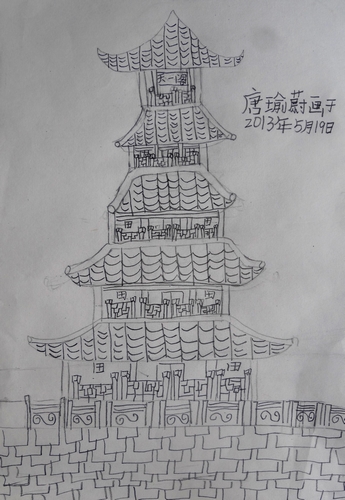 天一阁
唐瑜蔚画于
2013年5月19日